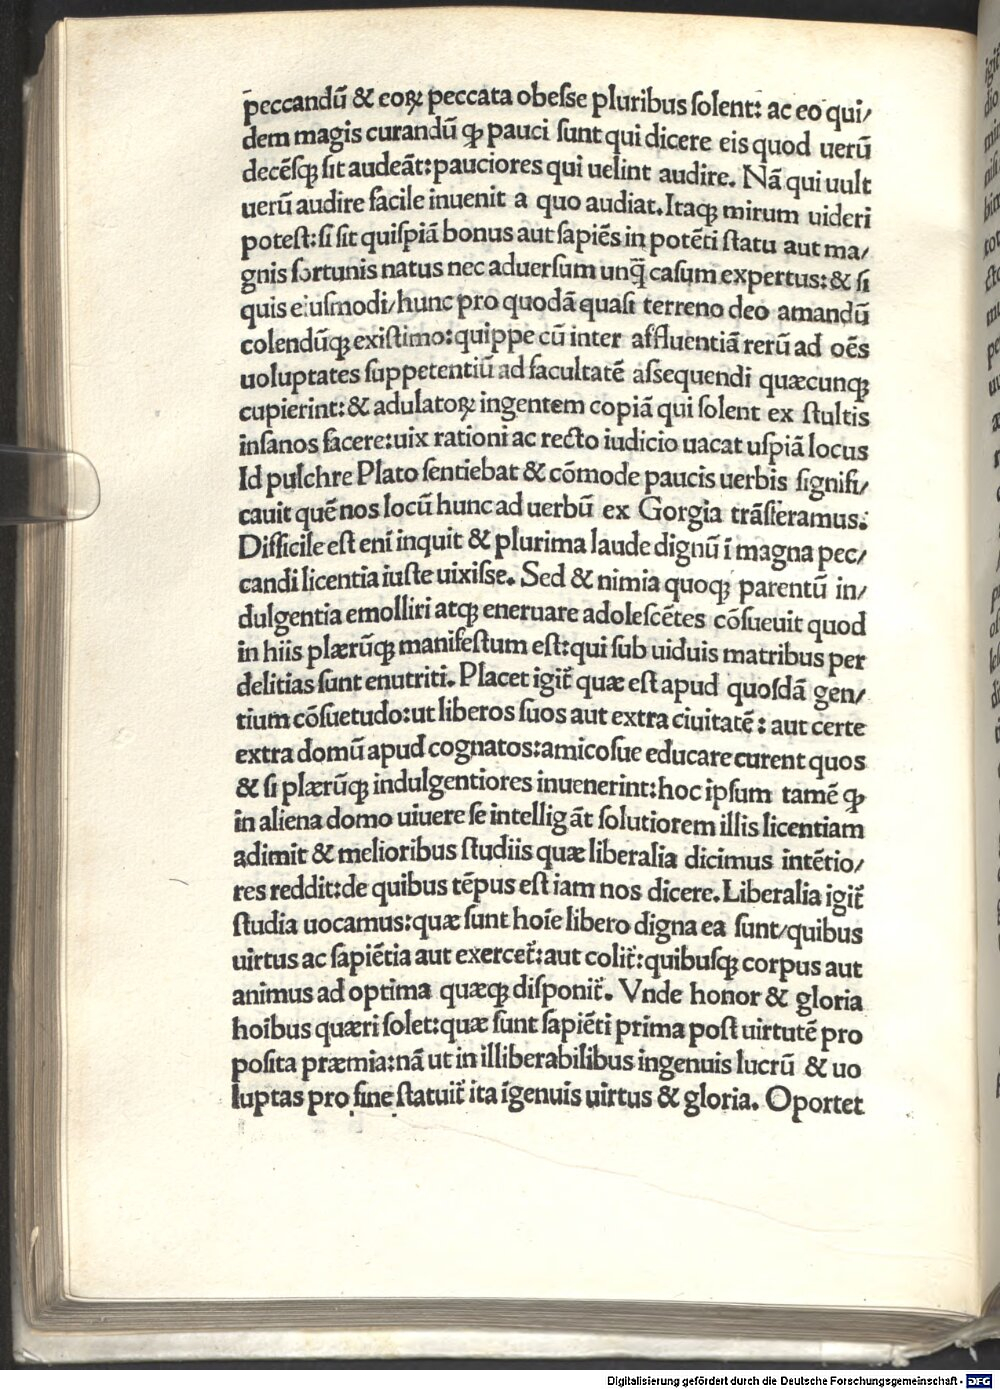 peccandū & eoꝝ peccata obesse pluribus solent: ac eo qui/
dem magis curandū ꝙ pauci sunt qui dicere eis quod uerū
decēsqꝫ sit audeāt: pauciores qui uelint audire. Nā qui uult
uerū audire facile inuenit a quo audiat. Itaqꝫ mirum uideri
potest: si sit quispiā bonus aut sapiēs in potēti statu aut ma/
gnis fortunis natus nec aduersum unq̄ casum expertus: & si
quis eiusmodi/ hunc pro quodā quasi terreno deo amandū
colendūqꝫ existimo: quippe cū inter affluentiā rerū ad oēs
uoluptates suppetentiū ad facultatē assequendi quæcunqꝫ
cupierint: & adulatoꝝ ingentem copiā qui solent ex stultis
insanos facere: uix rationi ac recto iudicio uacat uspiā locus
Id pulchre Plato sentiebat & cōmode paucis uerbis signifi/
cauit quē nos locū hunc ad uerbū ex Gorgia trāsferamus:
Difficile est eni inquit & plurima laude dignū ī magna pec/
candi licentia iuste uixisse. Sed & nimia quoqꝫ parentū in/
dulgentia emolliri atqꝫ eneruare adolescētes cōsueuit quod
in hiis plærūqꝫ manifestum est: qui sub uiduis matribus per
delitias sunt enutriti. Placet igit̃ quæ est apud quosdā gen/
tium cōsuetudo: ut liberos suos aut extra ciuitatē: aut certe
extra domū apud cognatos: amicosue educare curent quos
& si plærūqꝫ indulgentiores inuenerint: hoc ipsum tamē ꝙ
in aliena domo uiuere se intelligāt solutiorem illis licentiam
adimit & melioribus studiis quæ liberalia dicimus intētio/
res reddit: de quibus tēpus est iam nos dicere. Liberalia igit̃
studia uocamus: quæ sunt hoīe libero digna ea sunt/ quibus
uirtus ac sapiētia aut exercet̃: aut colit̃: quibusqꝫ corpus aut
animus ad optima quæqꝫ disponit̃. Vnde honor & gloria
hoibus quæri solet: quæ sunt sapiēti prima post uirtutē pro
posita præmia: nā ut in illiberabilibus ingenuis lucrū & uo
luptas pro fine statuit̃ ita īgenuis uirtus & gloria. Oportet
Digitalisierung gefördert durch die Deutsche Forschungsgemeinschaft - DFG